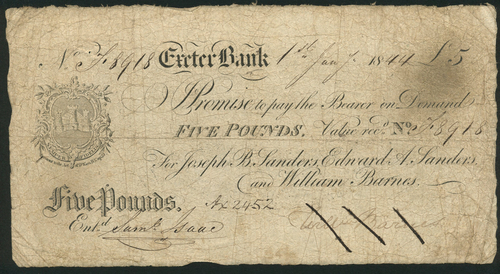 No. F8918 Exeter Bank 1st Jany. 1844 £5
I Promise to pay the Bearer on Demand
FIVE POUNDS. Value recd. No. F8918
For Joseph B. Sanders, Edward A. Sanders,
and William Barnes.
Five Pounds. Ax2452
Entd. Saml. Isaac